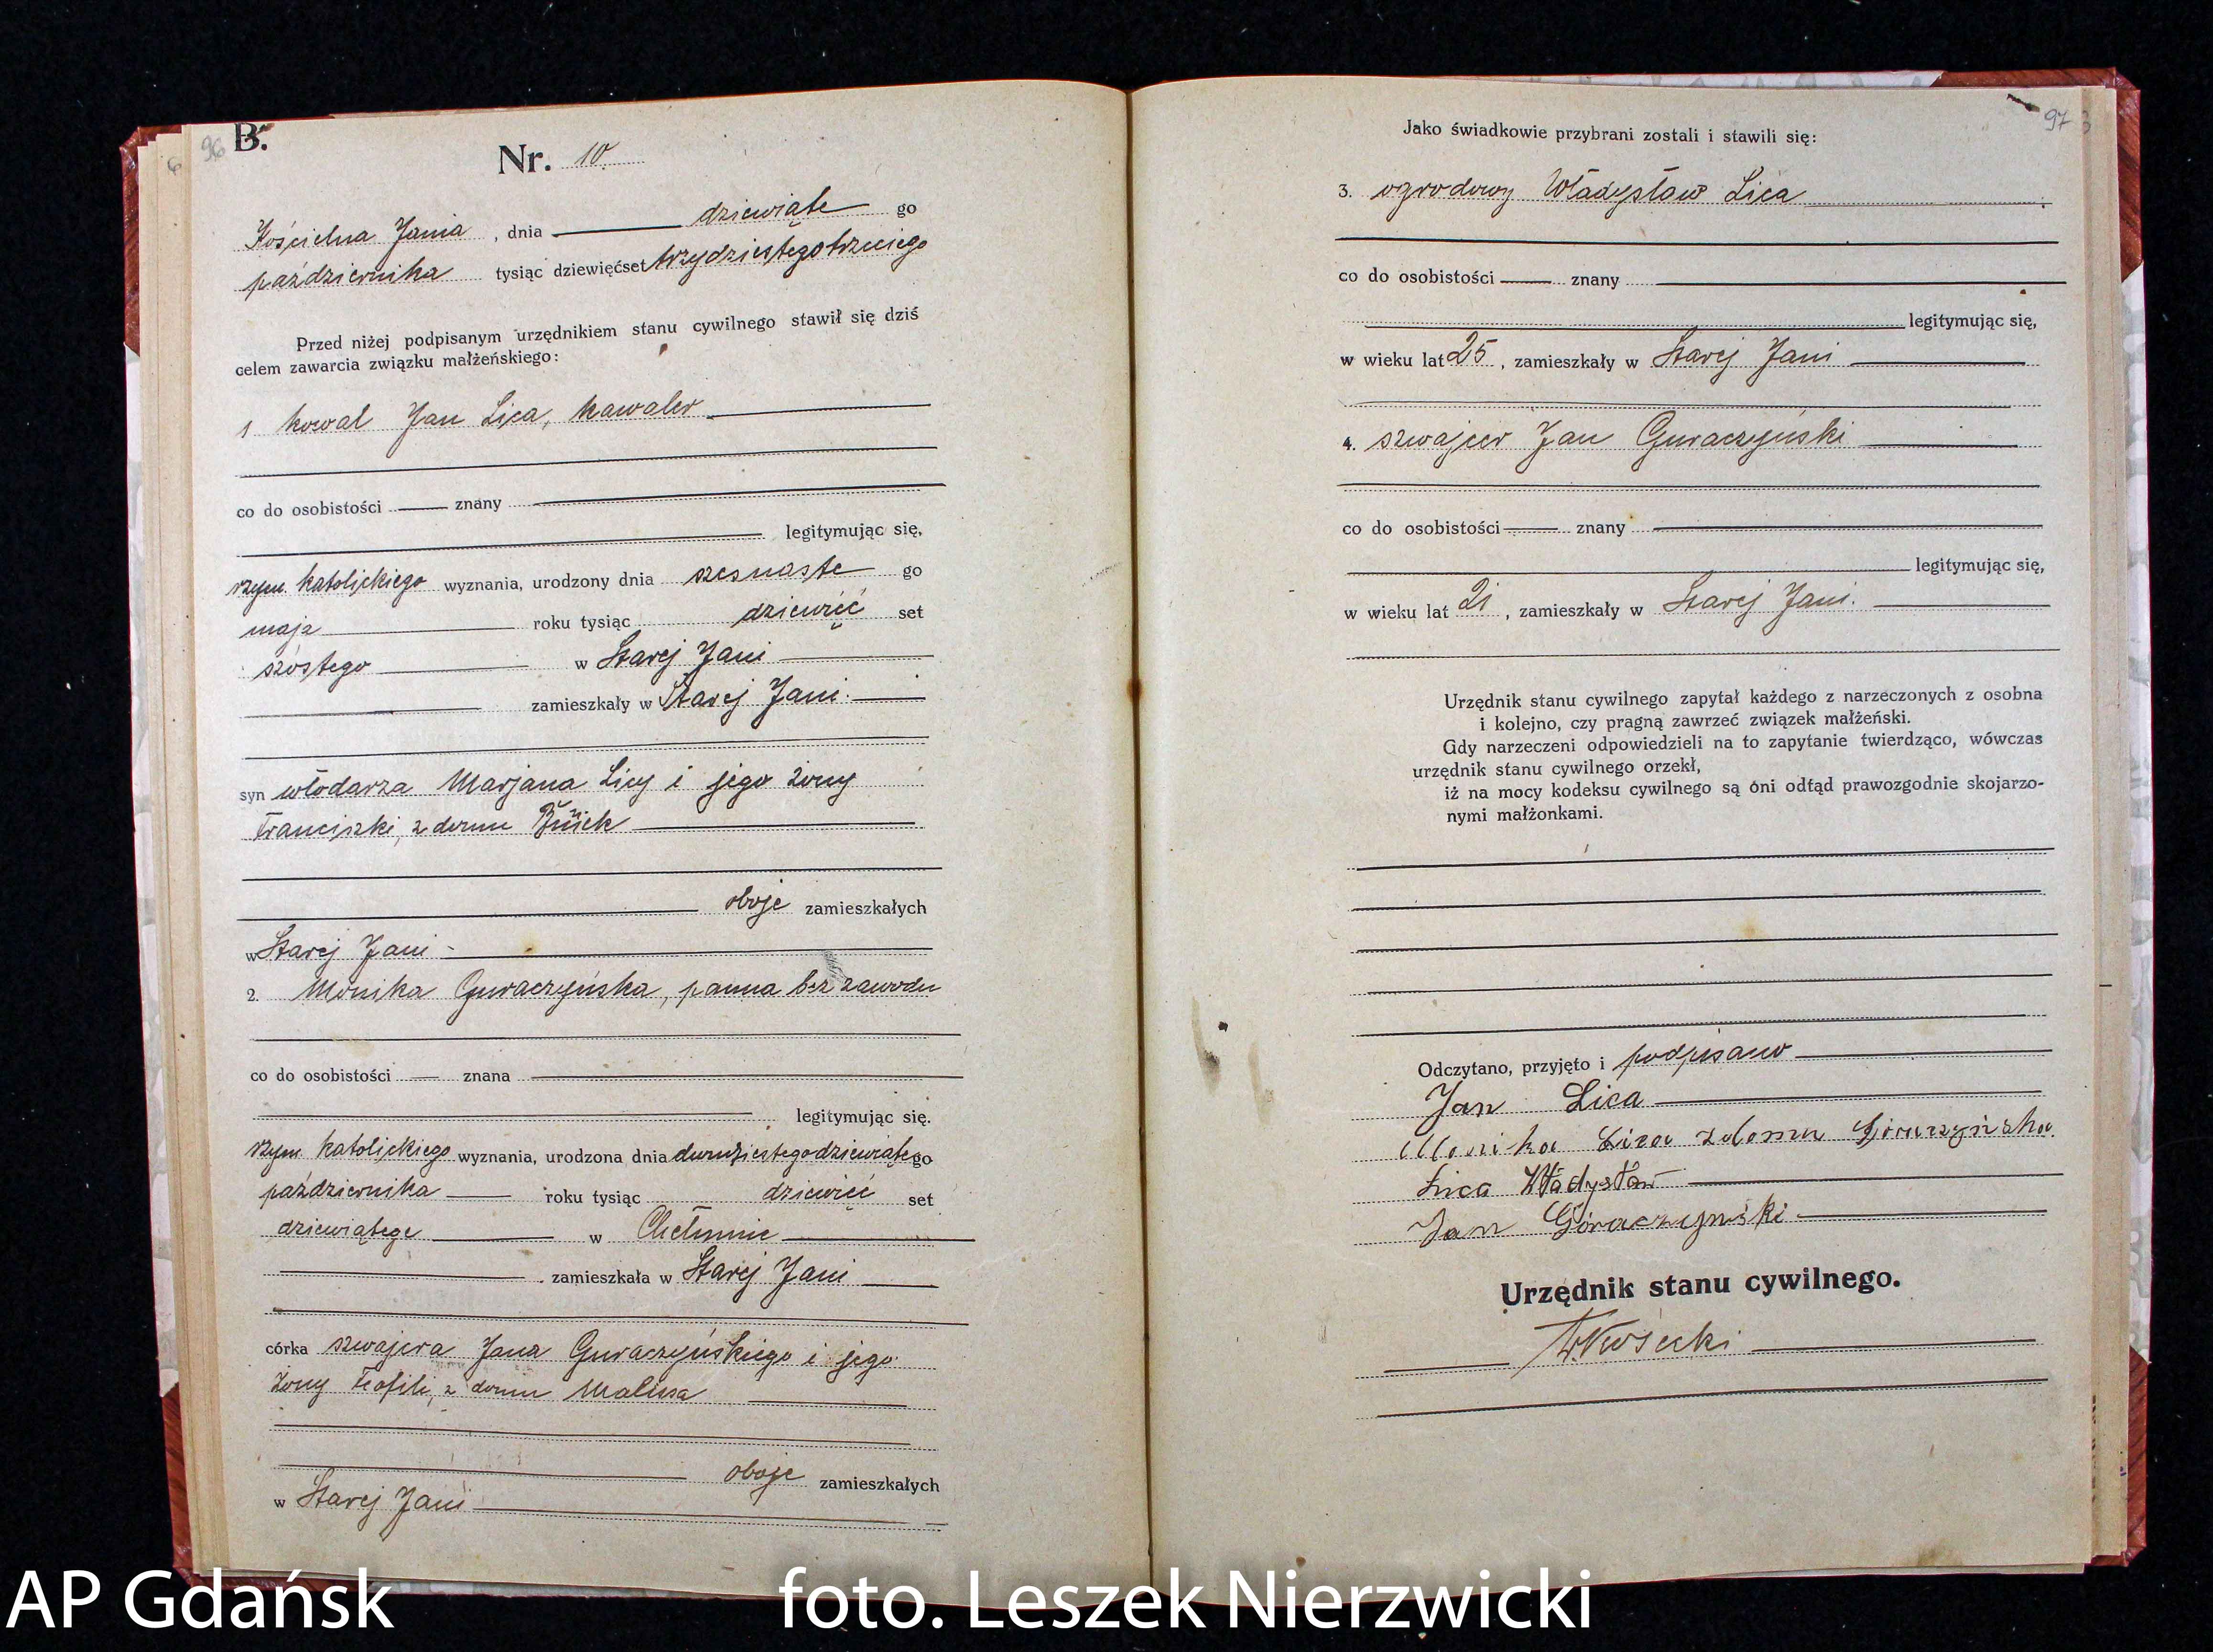 96
B.
Nr. 10
Kościelna Jania , dnia dziewiąte go
października tysiąc dziewięćset trzydziestego trzeciego
Przed niżej podpisanym urzędnikiem stanu cywilnego stawił się dziś
celem zawarcia związku małżeńskiego:
1 kowal Jan Lica, kawaler
co do osobistości znany
legitymując się,
rzym. katolickiego wyznania, urodzony dnia szesnaste go
maja roku tysiąc dziewięć set
szóstego w Starej Jani
zamieszkały w Starej Jani.
syn włodarza Marjana Licy i jego żony
Franciszki, z domu
oboje zamieszkałych
w Starej Jani -
2. Monika Guraczyńska, panna bez zawodu
co do osobistości znana
legitymując się.
rzym. katolickiego wyznania, urodzona dnia dwudziestego dziewiątego
października roku tysiąc dziewięć set
dziewiątego w Chełmnie
zamieszkała w Starej Jani
córka szwajcra Jana Guraczyńskiego i jego
żony Teofili, z domu Malissa
oboje zamieszkałych
w Starej Jani
97
Jako świadkowie przybrani zostali i stawili się:
3. ogrodowy Władysław Lica
co do osobistości znany
legitymując się,
w wieku lat 25 , zamieszkały w Starej Jani
4. szwajcer Jan Guraczyński
co do osobistości znany
legitymując się,
w wieku lat 21 , zamieszkały w Starej Jani.
Urzędnik stanu cywilnego zapytał każdego z narzeczonych z osobna
i kolejno, czy pragną zawrzeć związek małżeński.
Gdy narzeczeni odpowiedzieli na to zapytanie twierdząco, wówczas
urzędnik stanu cywilnego orzekł,
iż na mocy kodeksu cywilnego są oni odtąd prawozgodnie skojarzo-
nymi małżonkami.
Odczytano, przyjęto i podpisano
Jan Lica
Monika Lica z domu Góraczyńska.
Lica Władysław
Jan Góraczyński
Urzędnik stanu cywilnego.
AP Gdańsk
foto. Leszek Nierzwicki